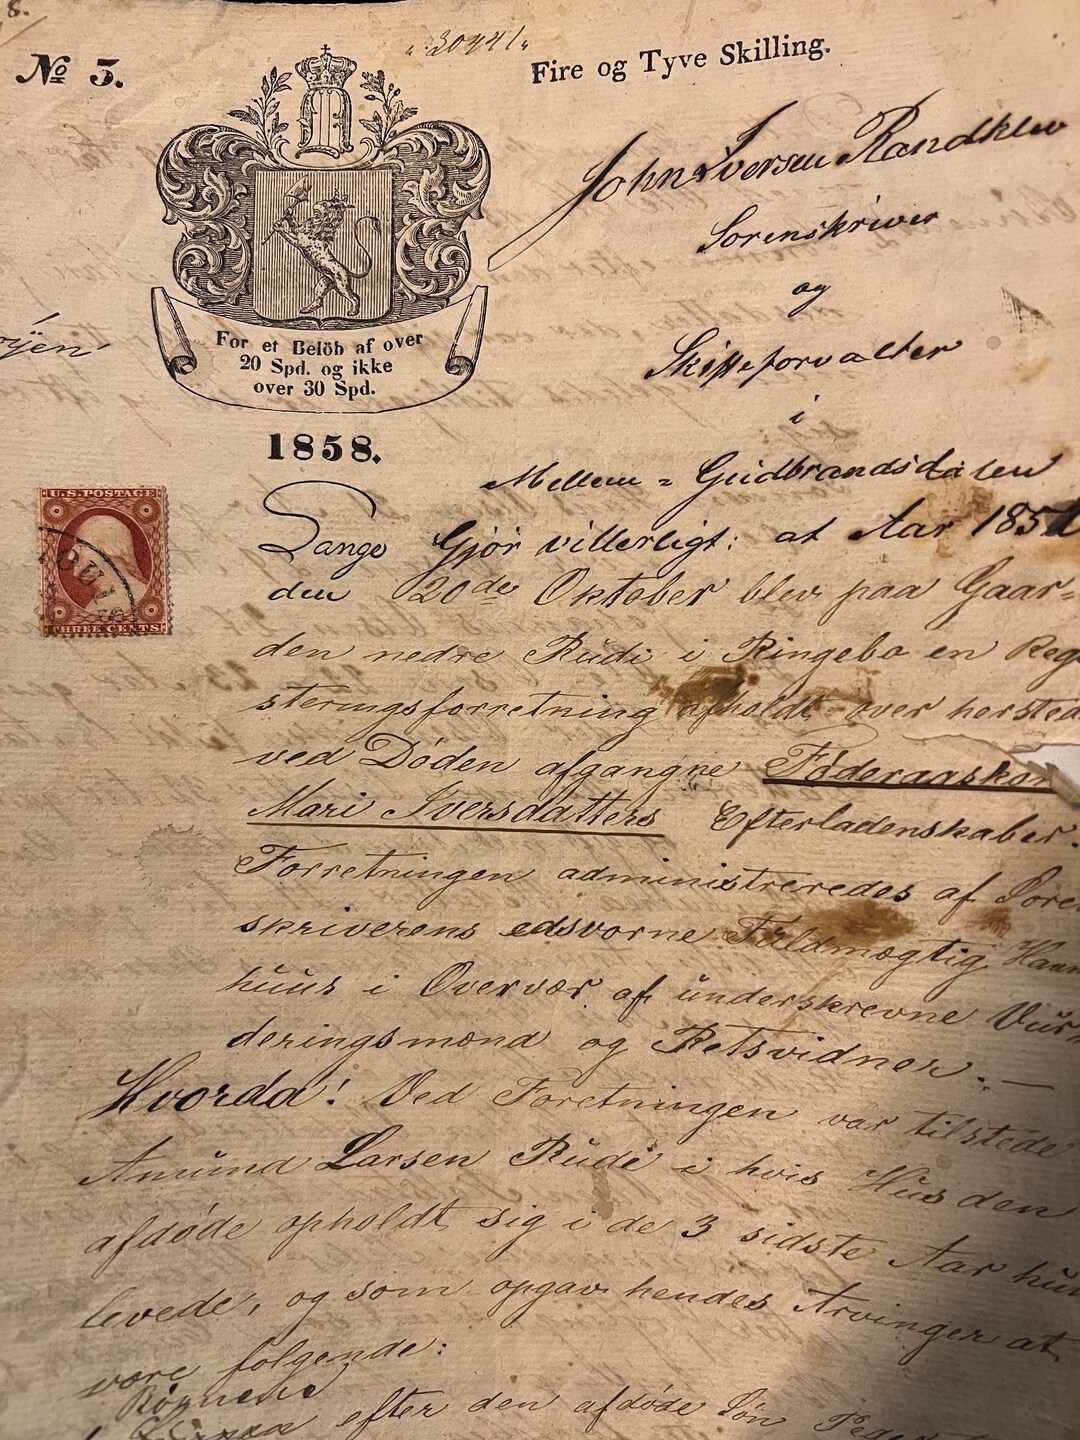 8.
No 5.
"30441"
Fire og Tyve Skilling.
For et Belöb af over
20 Spd. og ikke
over 30 Spd.
1858.
U.S. POSTAGE
THREE CENTS
John Iversen Randklev
Sorenskriver
og
Skifteforvalter
i
Mellem = Gudbrandsdalen
Gjör villerligt: at Aar 1857
den 20de Oktober blev paa Gaar=
den nedre Rudi i Ringebo en Reg
steringsforretning afholdt over hersted
ved Döden afgangne Föderaadskon
Mari Iversdatters Efterladenskaber.
Forretningen administreredes af Sore
skriverens edsvorne Fuldmægtig
huus i Overvær af underskrevne Vur
deringsmænd og Retsvidner. —
Hvorda! Ved Forretningen var tilstede
Amund Larsen Rudi i hvis Hus den
afdöde opholdt sig i de 3 sidste Aar hun
levede, og som opgav hendes Arvinger at
være fölgende:
efter den afdöde Sön Peder